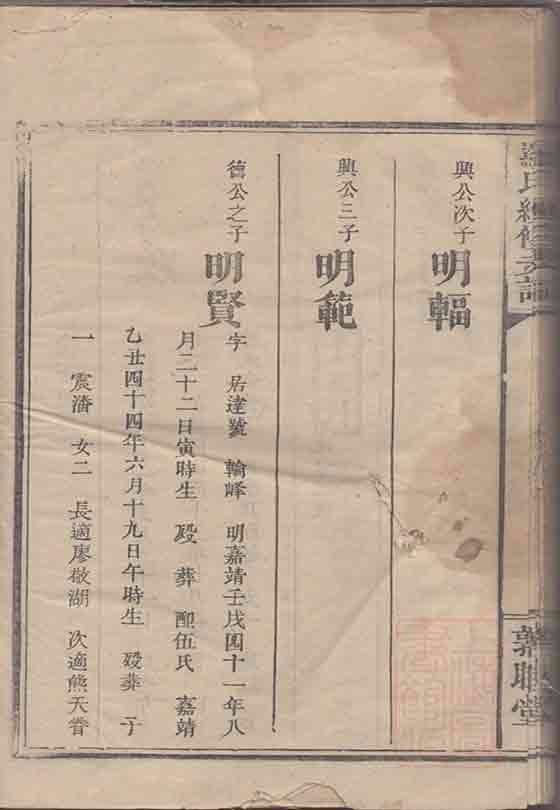 羅氏續修支譜
敦職堂
興公次子 明輻
興公三子 明範
德公之子 明賢
字 居達號 輪峰 明嘉靖壬戌四十一年八
月二十二日寅時生 殁 葬 配伍氏 嘉靖
乙丑四十四年六月十九日午時生 殁葬 子
一 震潘 女二 長適廖敬湖 次適熊天眷